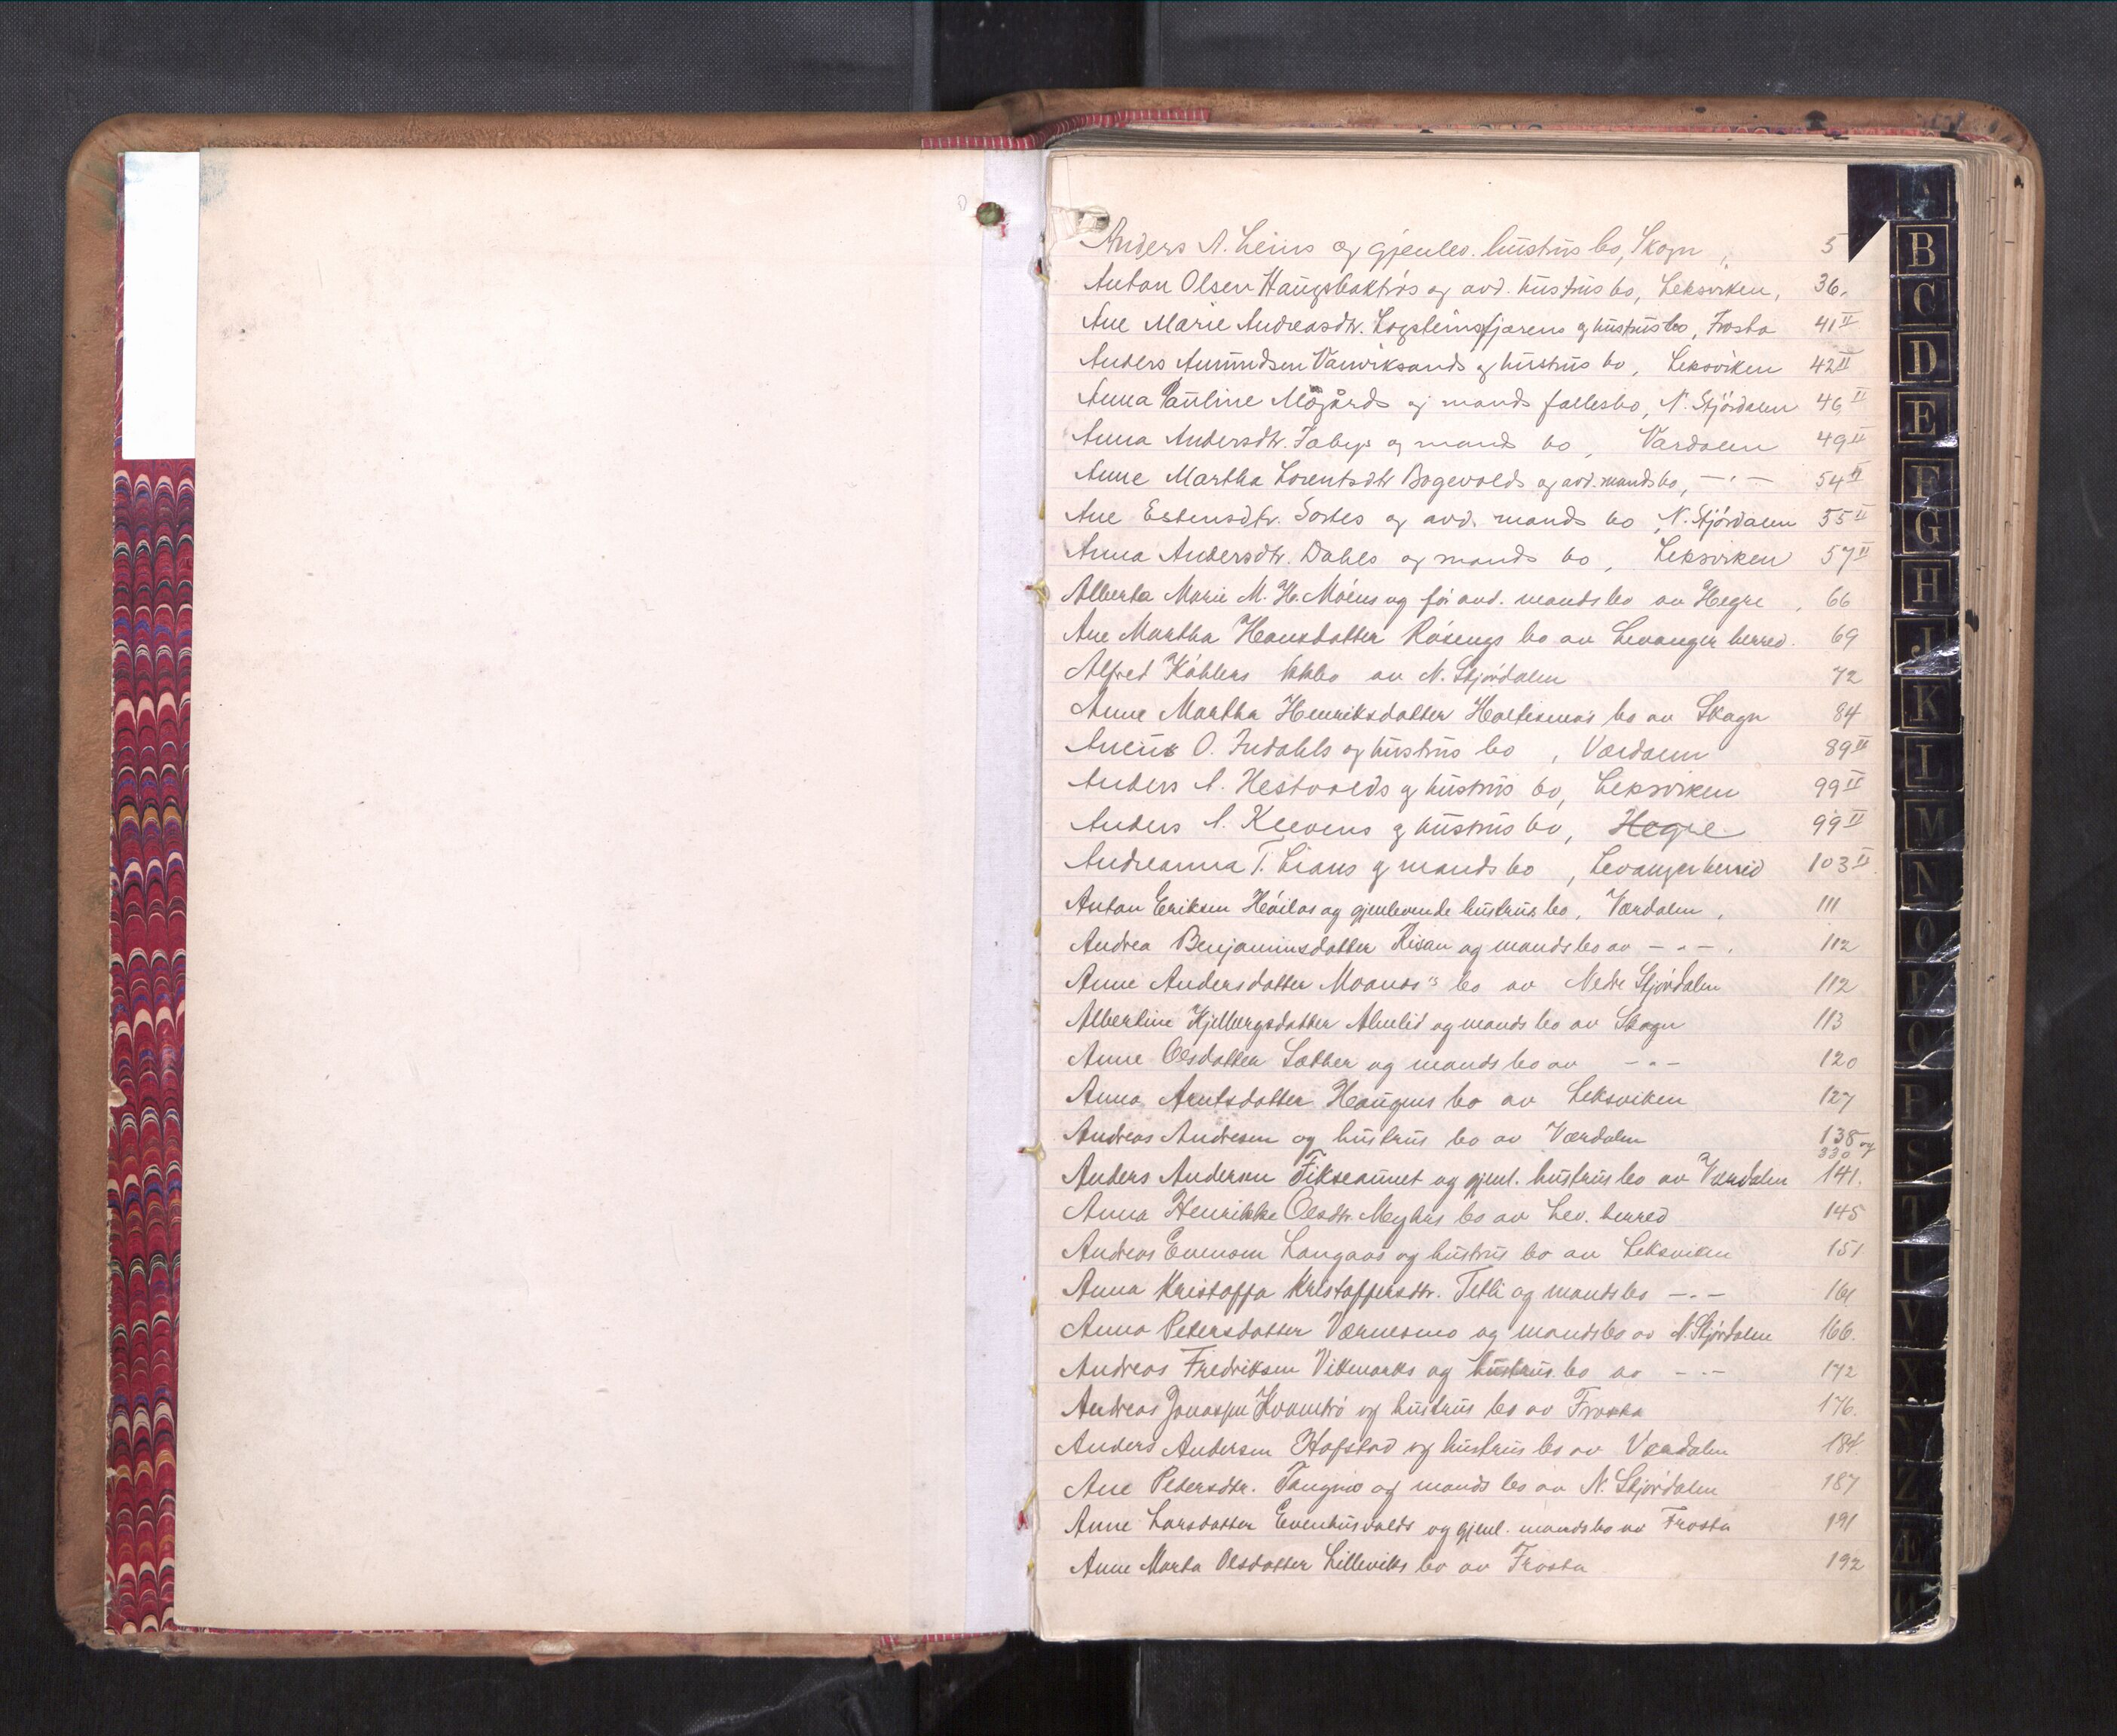 Anders A. Leins og gjenlev. hustrus bo, Skogn 5
Anton Olsen Haugsbaktrøs og avd. hustrus bo, Leksviken, 36.
Ane Marie Andreasdtr. Logsteinsfjærens og hustrus bo, Frosta 41 II
Anders Amundsen Vanviksands og hustrus bo, Leksviken 42 II
Anna Pauline Mögårds og mands fællesbo, N. Stjördalen 46 II
Anna Andersdtr. og mands bo, Værdalen 49 II
Anne Martha Lorentsdtr Bogevolds og avd. mands bo, — " — 54 II
Ane Estensdtr. Sortes og avd. mands bo, N. Stjördalen 55 II
Anna Andersdtr. Dahls og mands bo, Leksviken 57 II
Alberta Marie M. H. Moens og før avd. mands bo av Hegre, 66
Ane Martha Hansdatter Rösengs bo av Levanger herred. 69
Alfred Köhlers bo av N. Stjördalen 72
Anne Martha Henriksdatter bo av Skogn 84
O. Indahls og hustrus bo, Værdalen 89 II
Anders A. Hestvolds og hustrus bo, Leksviken 99 II
Anders A. Kleivens og hustrus bo, Hegre 99 II
Andreanna T. Lians og mands bo, Levanger herred 103 II
Anton Eriksen Höilos og gjenlevende hustrus bo, Værdalen, 111
Andrea Benjaminsdatter Risan og mands bo av — " — . 112
Anne Andersdatter Moanes's bo av Nedre Stjördalen 112
Albertine Kjelbergsdatter Almlid og mands bo av Skogn 113
Anne Olsdatter Sæther og mands bo av — " — 120
Anna Arntsdatter Haugens bo av Leksviken 127
Andreas Andresen og hustrus bo av Værdalen 138 og 330
Anders Andersen Fikseaunet og gjenl. hustrus bo av Værdalen 141.
Anna Henrikke Olsdtr. Myhrs bo av Lev. herred 145
Andreas Evensen Langaas og hustrus bo av Leksviken 151
Anna Kristoffa Kristoffersdtr. Tetli og mands bo — " — 161
Anna Petersdatter Værnesmo og mands bo av N. Stjördalen 166.
Andreas Fredriksen Vikmarks og hustrus bo av — " — 172
Andreas Jonassen Kvamtrö og hustrus bo av Frosta 176.
Anders Andersen Hofstad og hustrus bo av Værdalen 184
Ane Petersdtr. Tangmo og mands bo av N. Stjördalen 187
Anne Larsdatter Evenhusvolds og gjenl. mands bo av Frosta 191
Anne Marta Olsdatter Lilleviks bo av Frosta 192
A
B
C
D
E
F
G
H
J
K
L
M
N
O
P
Q
R
S
T
U
V
X
Y
Z
Æ